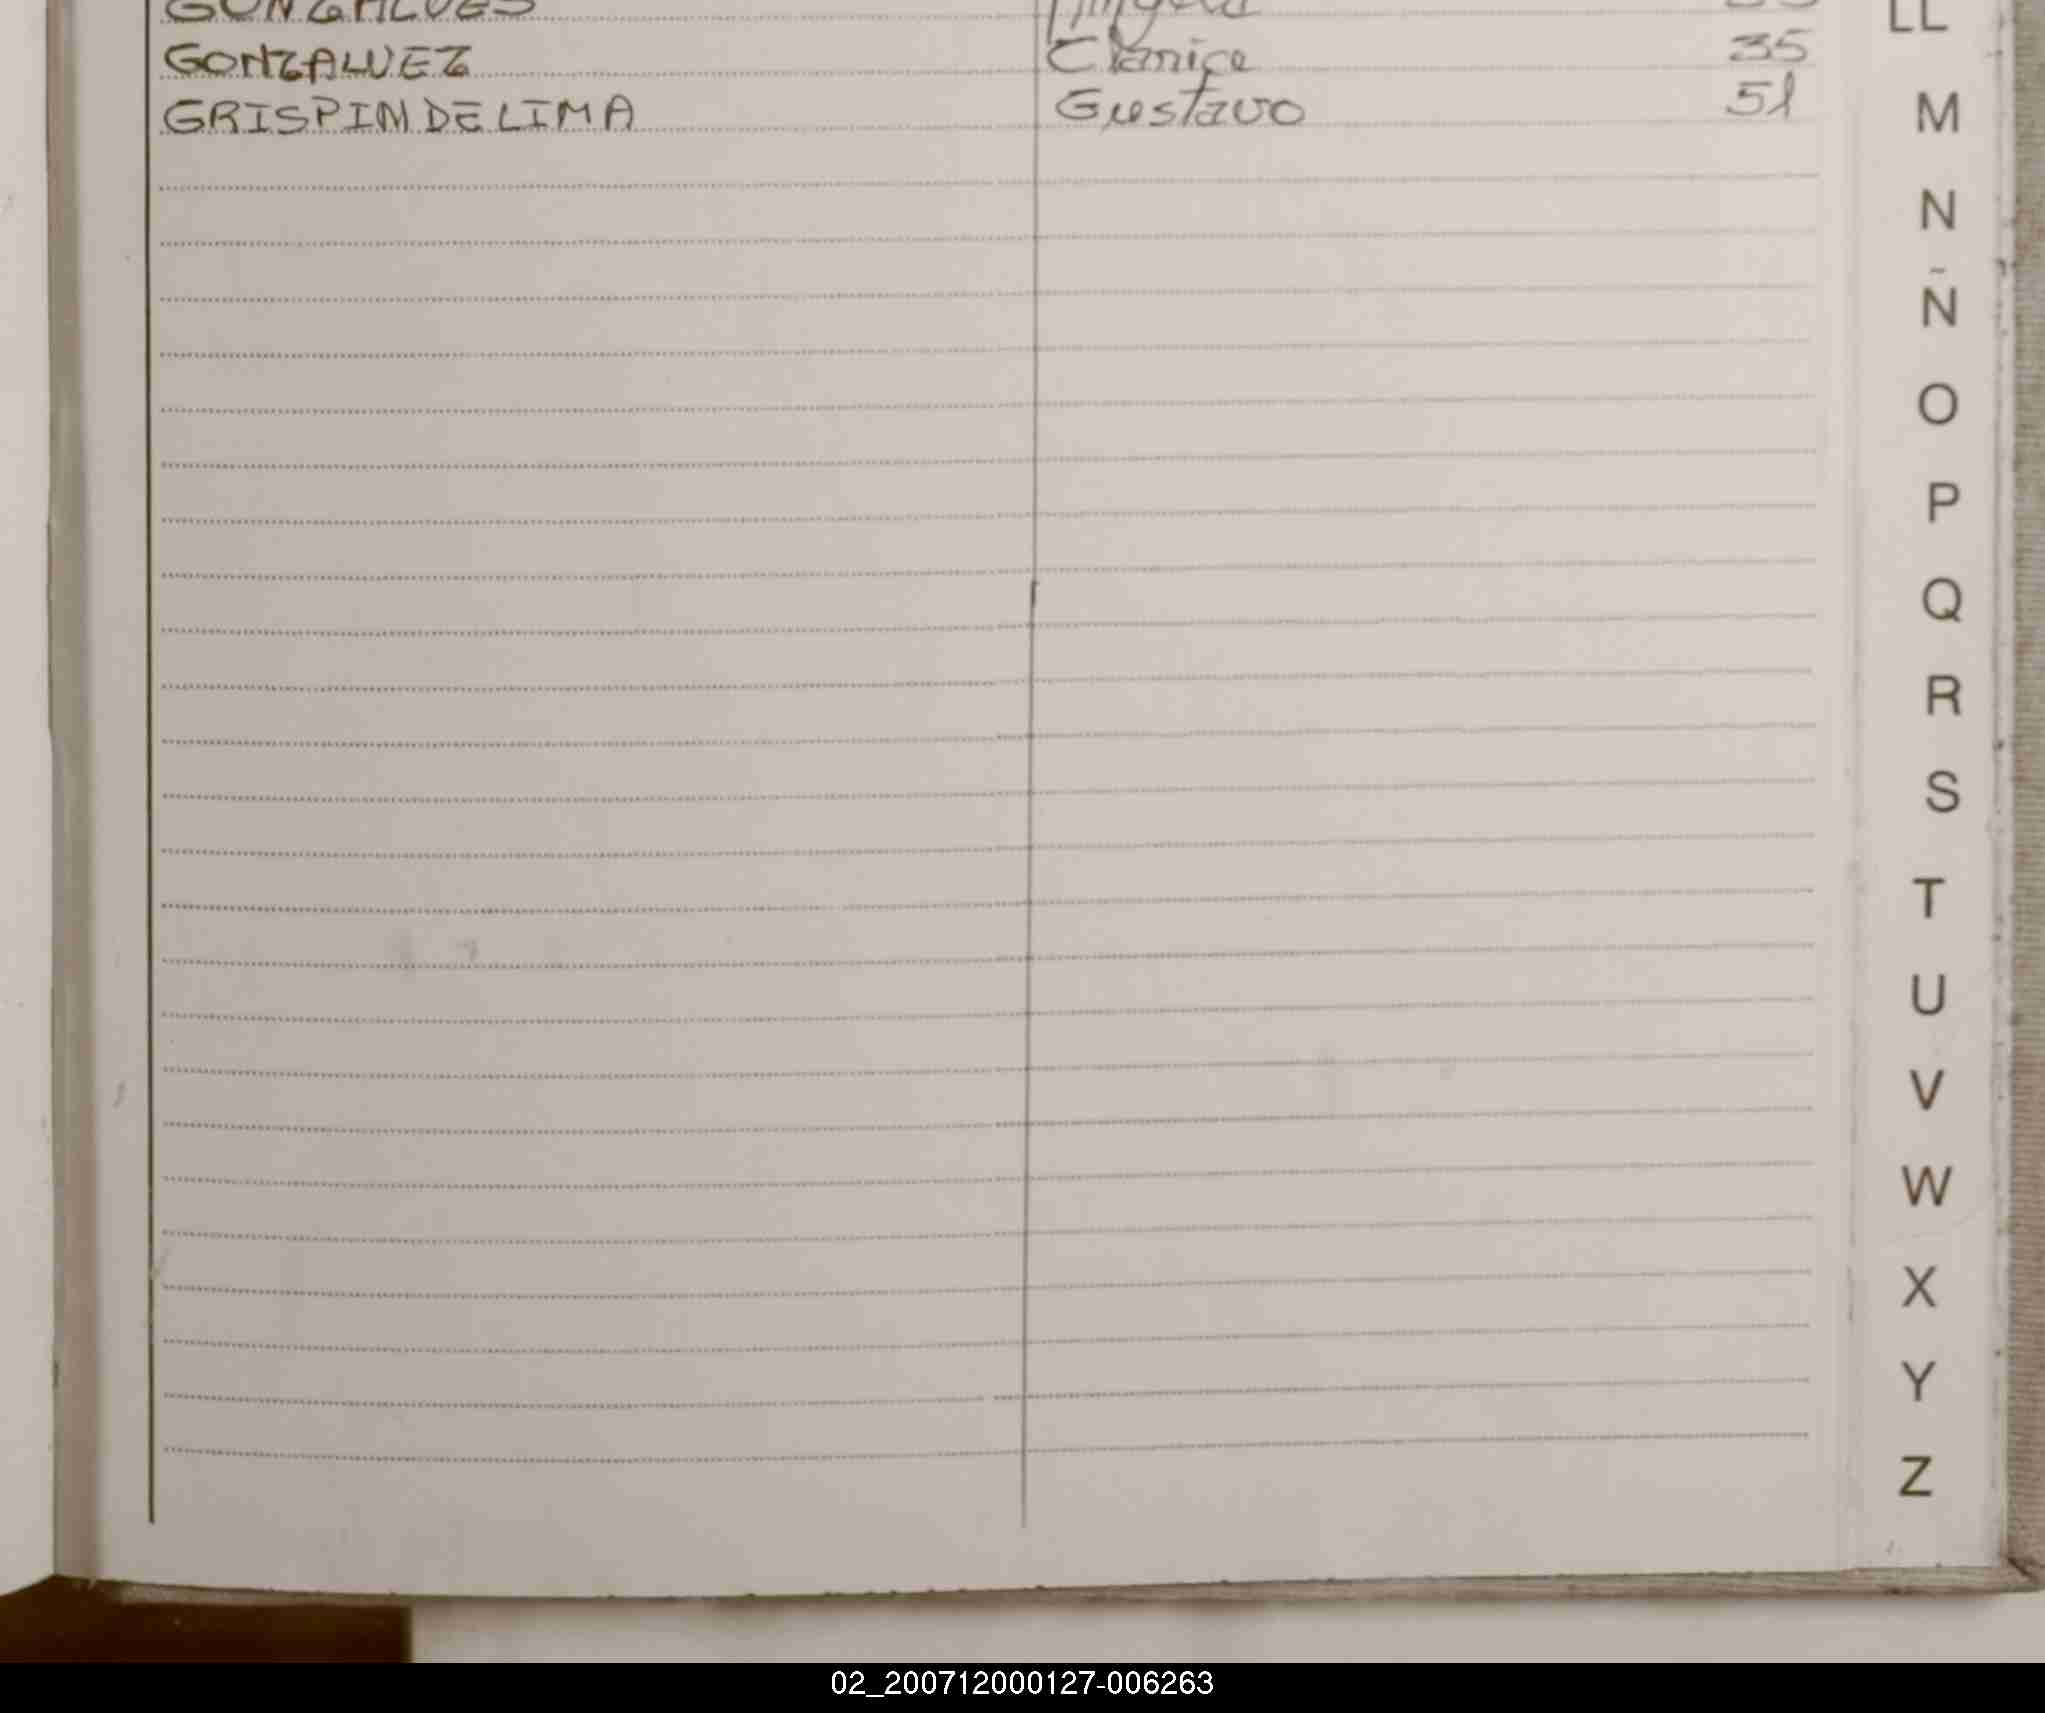 GONZALVES Angela
GONZALVEZ Clarice 35
GRISPIN DE LIMA Gustavo 51
LL
M
N
Ñ
O
P
Q
R
S
T
U
V
W
X
Y
Z
02_200712000127-006263